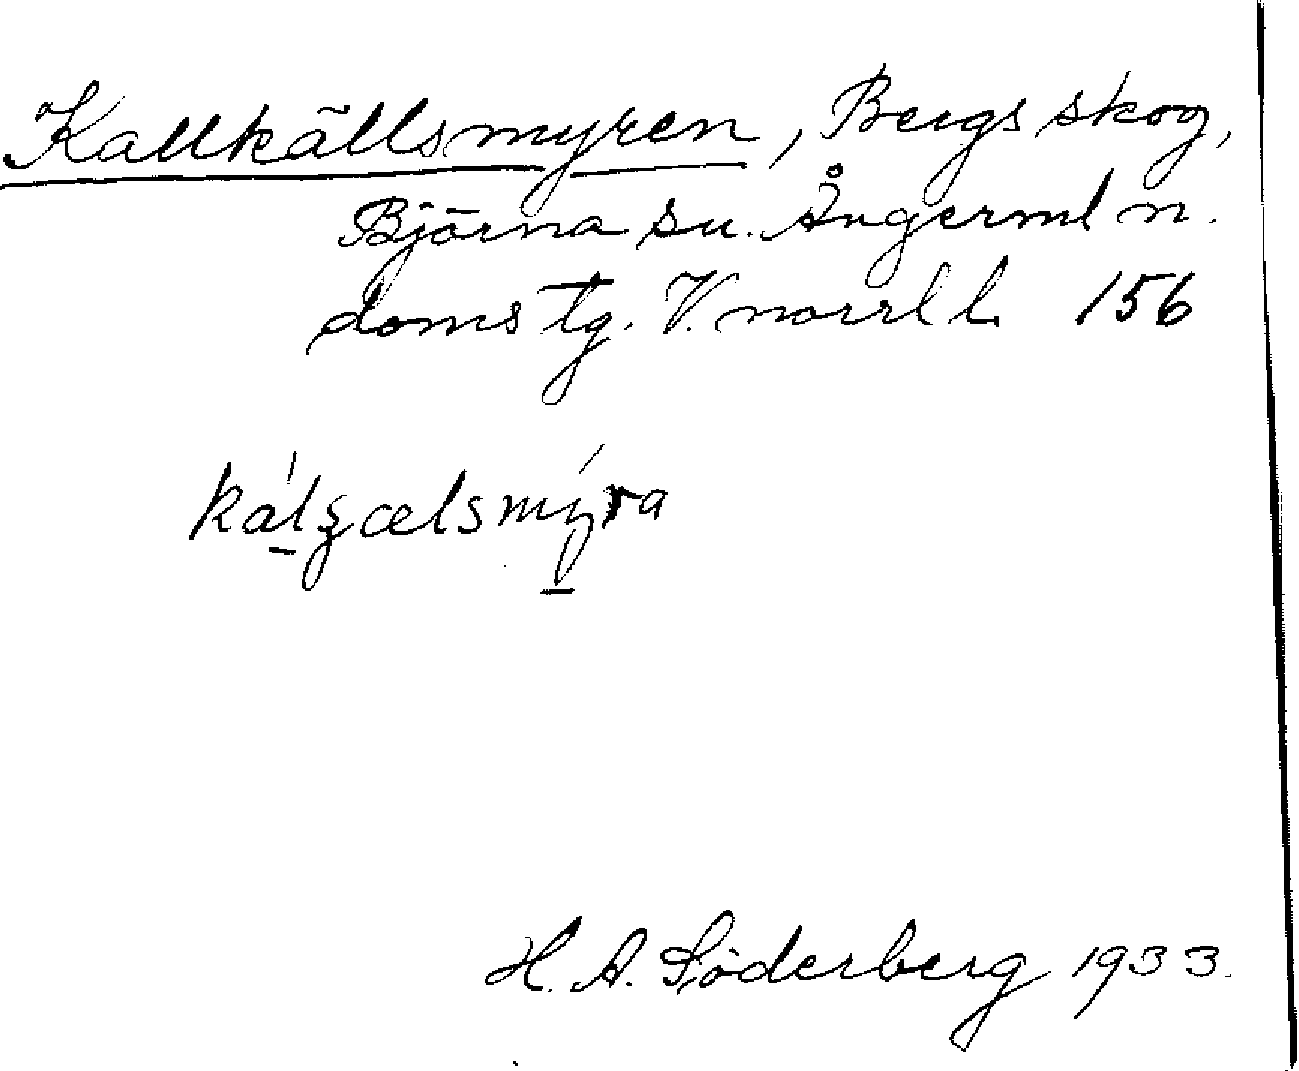 Kallkällsmyren, Bergs skog,
Björna sn. Ångerml n.
doms tg. V. norrl l. 156
kálʂælsmýra
H. A. Söderberg 1933.